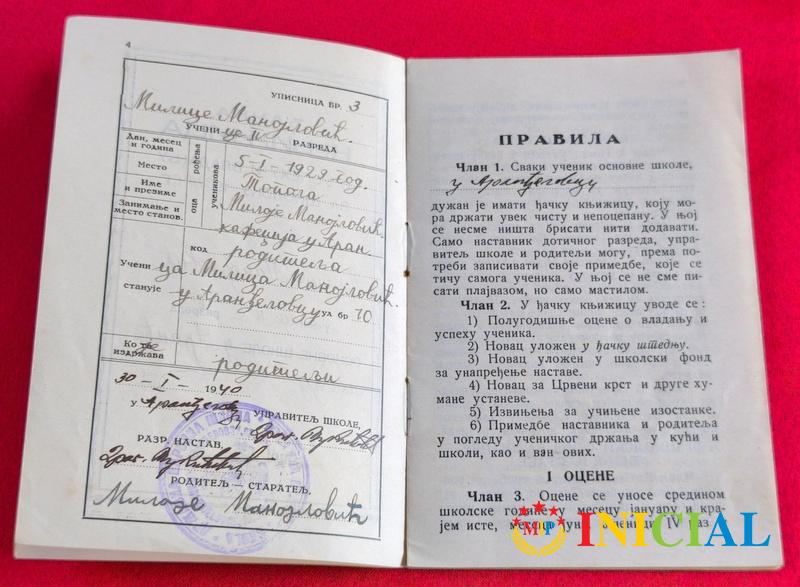 4
УПИСНИЦА БР. 3
Милице Манојловић.
УЧЕНИ це II РАЗРЕДА
Дан, месец и година рођења ученикова 5-I-1929 год.
Место Топола
Име и презиме оца Милоје Манојловић.
Занимање и место станов. кафеџија у Аран.
код родитеља
Учени ца Милица Манојловић.
станује у Аранђеловцу ул бр 70
Ко га издржава родитељи
30-I- 1940
у Аранђеловцу УПРАВИТЕЉ ШКОЛЕ,
РАЗР. НАСТАВ.
РОДИТЕЉ - СТАРАТЕЉ,
Милоје Манојловић
ПРАВИЛА
Члан 1. Сваки ученик основне школе,
у Аранђеловцу
дужан је имати ђачку књижицу, коју мо
ра држати увек чисту и непоцепану. У њој
се несме ништа брисати нити додавати.
Само наставник дотичног разреда, упра-
витељ школе и родитељи могу, према по-
треби записивати своје примедбе, које се
тичу самога ученика. У њој се не сме пи-
сати плајвазом, но само мастилом.
Члан 2. У ђачку књижицу уводе се :
1) Полугодишње оцене о владању и
успеху ученика.
2) Новац уложен у ђачку штедњу.
3) Новац уложен у школски фонд
за унапређење наставе.
4) Новац за Црвени крст и друге ху-
мане установе.
5) Извињења за учињене изостанке.
6) Примедбе наставника и родитеља
у погледу ученичког држања у кући и
школи, као и ван ових.
I ОЦЕНЕ
Члан 3. Оцене се уносе средином
школске године у месецу јануару и кра-
јем исте, месеца јуна, ученици IV раз
MP INICIAL